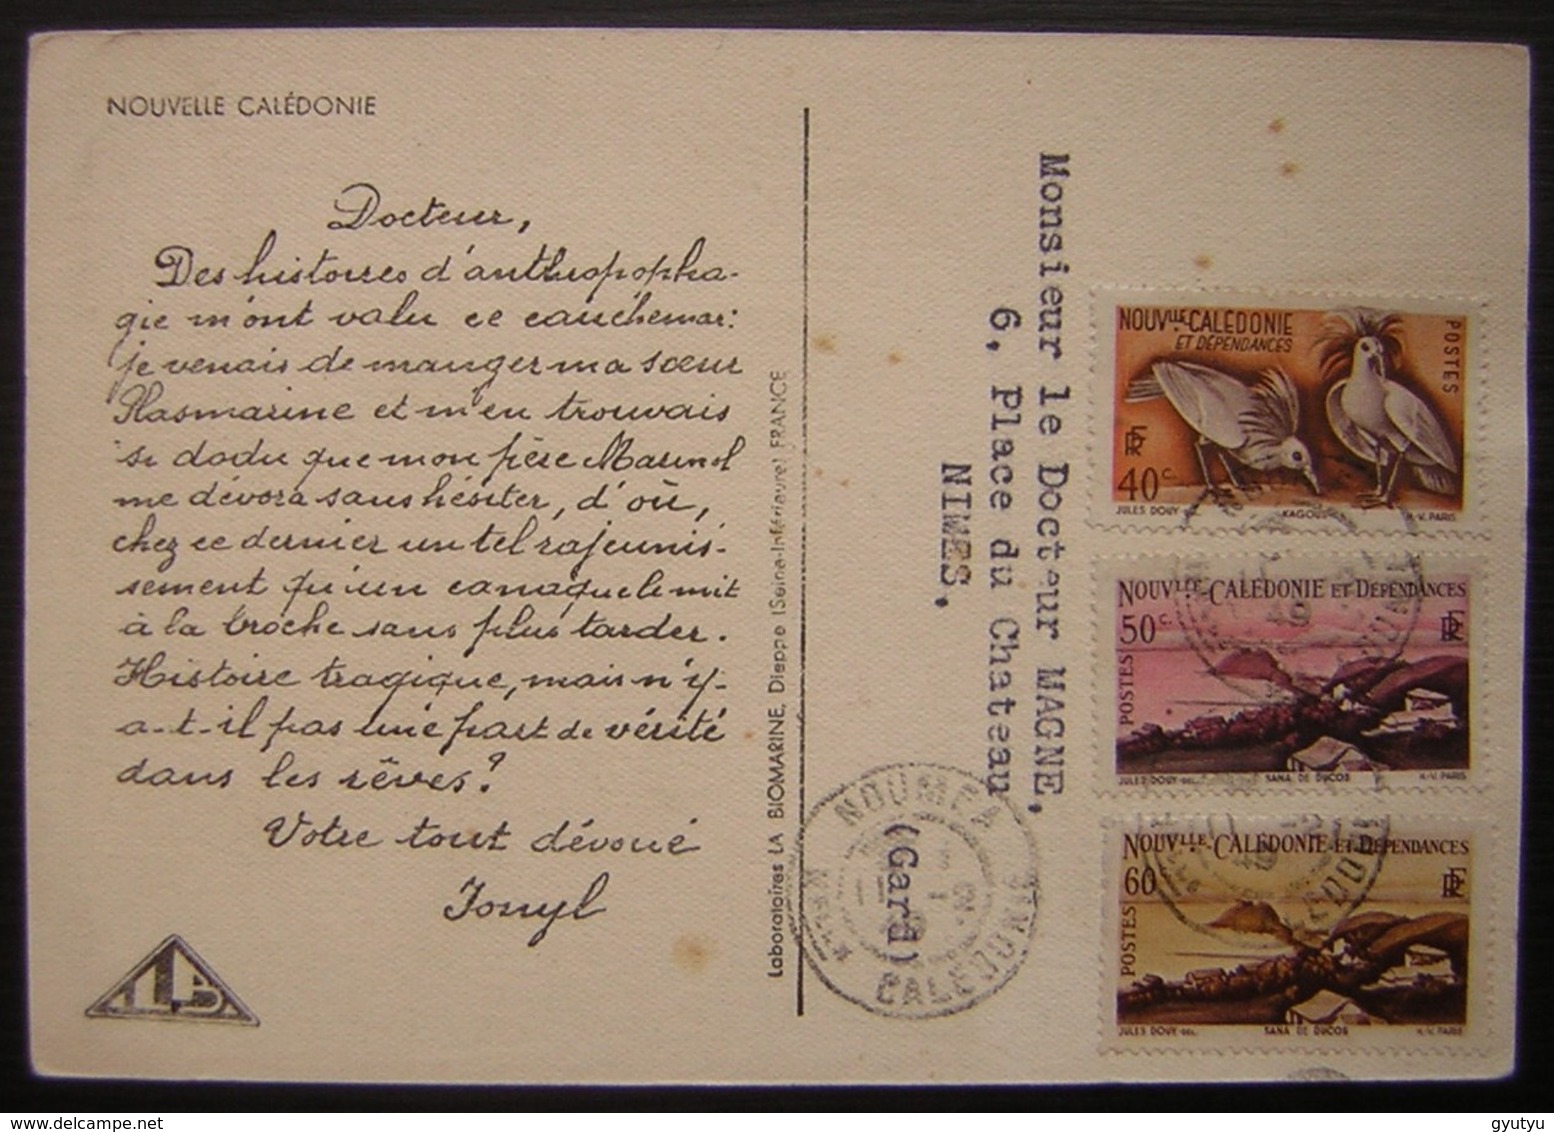 NOUVELLE CALÉDONIE
Docteur,
Des histoires d'anthropopha-
gie m'ont valu ce cauchemar:
je venais de manger ma sœur
Plasmarine et m'en trouvais
si dodu que mon frère Marinol
me dévora sans hésiter, d'où,
chez ce dernier un tel rajeunis-
sement qu'un canaque le mit
à la broche sans plus tarder.
Histoire tragique, mais n'y-
a-t-il pas une part de vérité
dans les rêves?
Votre tout dévoué
Ionyl
Laboratoires LA BIOMARINE, Dieppe (Seine-Inférieure) FRANCE
Monsieur le Docteur MAGNE,
6, Place du Chateau
NIMES.
(Gard)
NOUMEA
NELLE CALEDONIE
NOUVLLE-CALÉDONIE
ET DÉPENDANCES
POSTES
RF
40c.
JULES DOUY
KAGOUS
V. PARIS
NOUVLLE-CALÉDONIE ET DÉPENDANCES
50c.
RF
POSTES
JULES DOUY DEL.
SANA DE DUCOS
H.-V. PARIS
NOUVLLE-CALÉDONIE ET DÉPENDANCES
60c
RF
POSTES
JULES DOUY DEL.
SANA DE DUCOS
H.-V. PARIS
LB
gyutyu